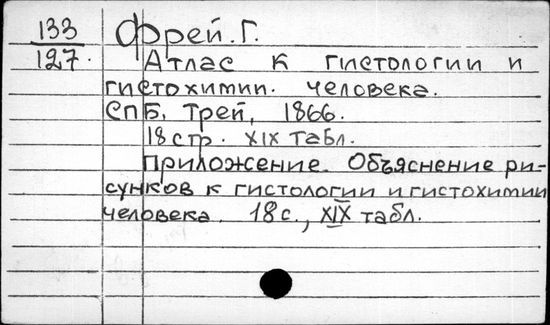 133
127.
Фрей. Г.
Атлас к гистологии и
гистохимии. человека.
СПБ, Трей, 1866.
18 стр. XIX табл.
Приложение. Объяснение ри-
сунков к гистологии и гистохимии
человека. 18 с., XIX табл.